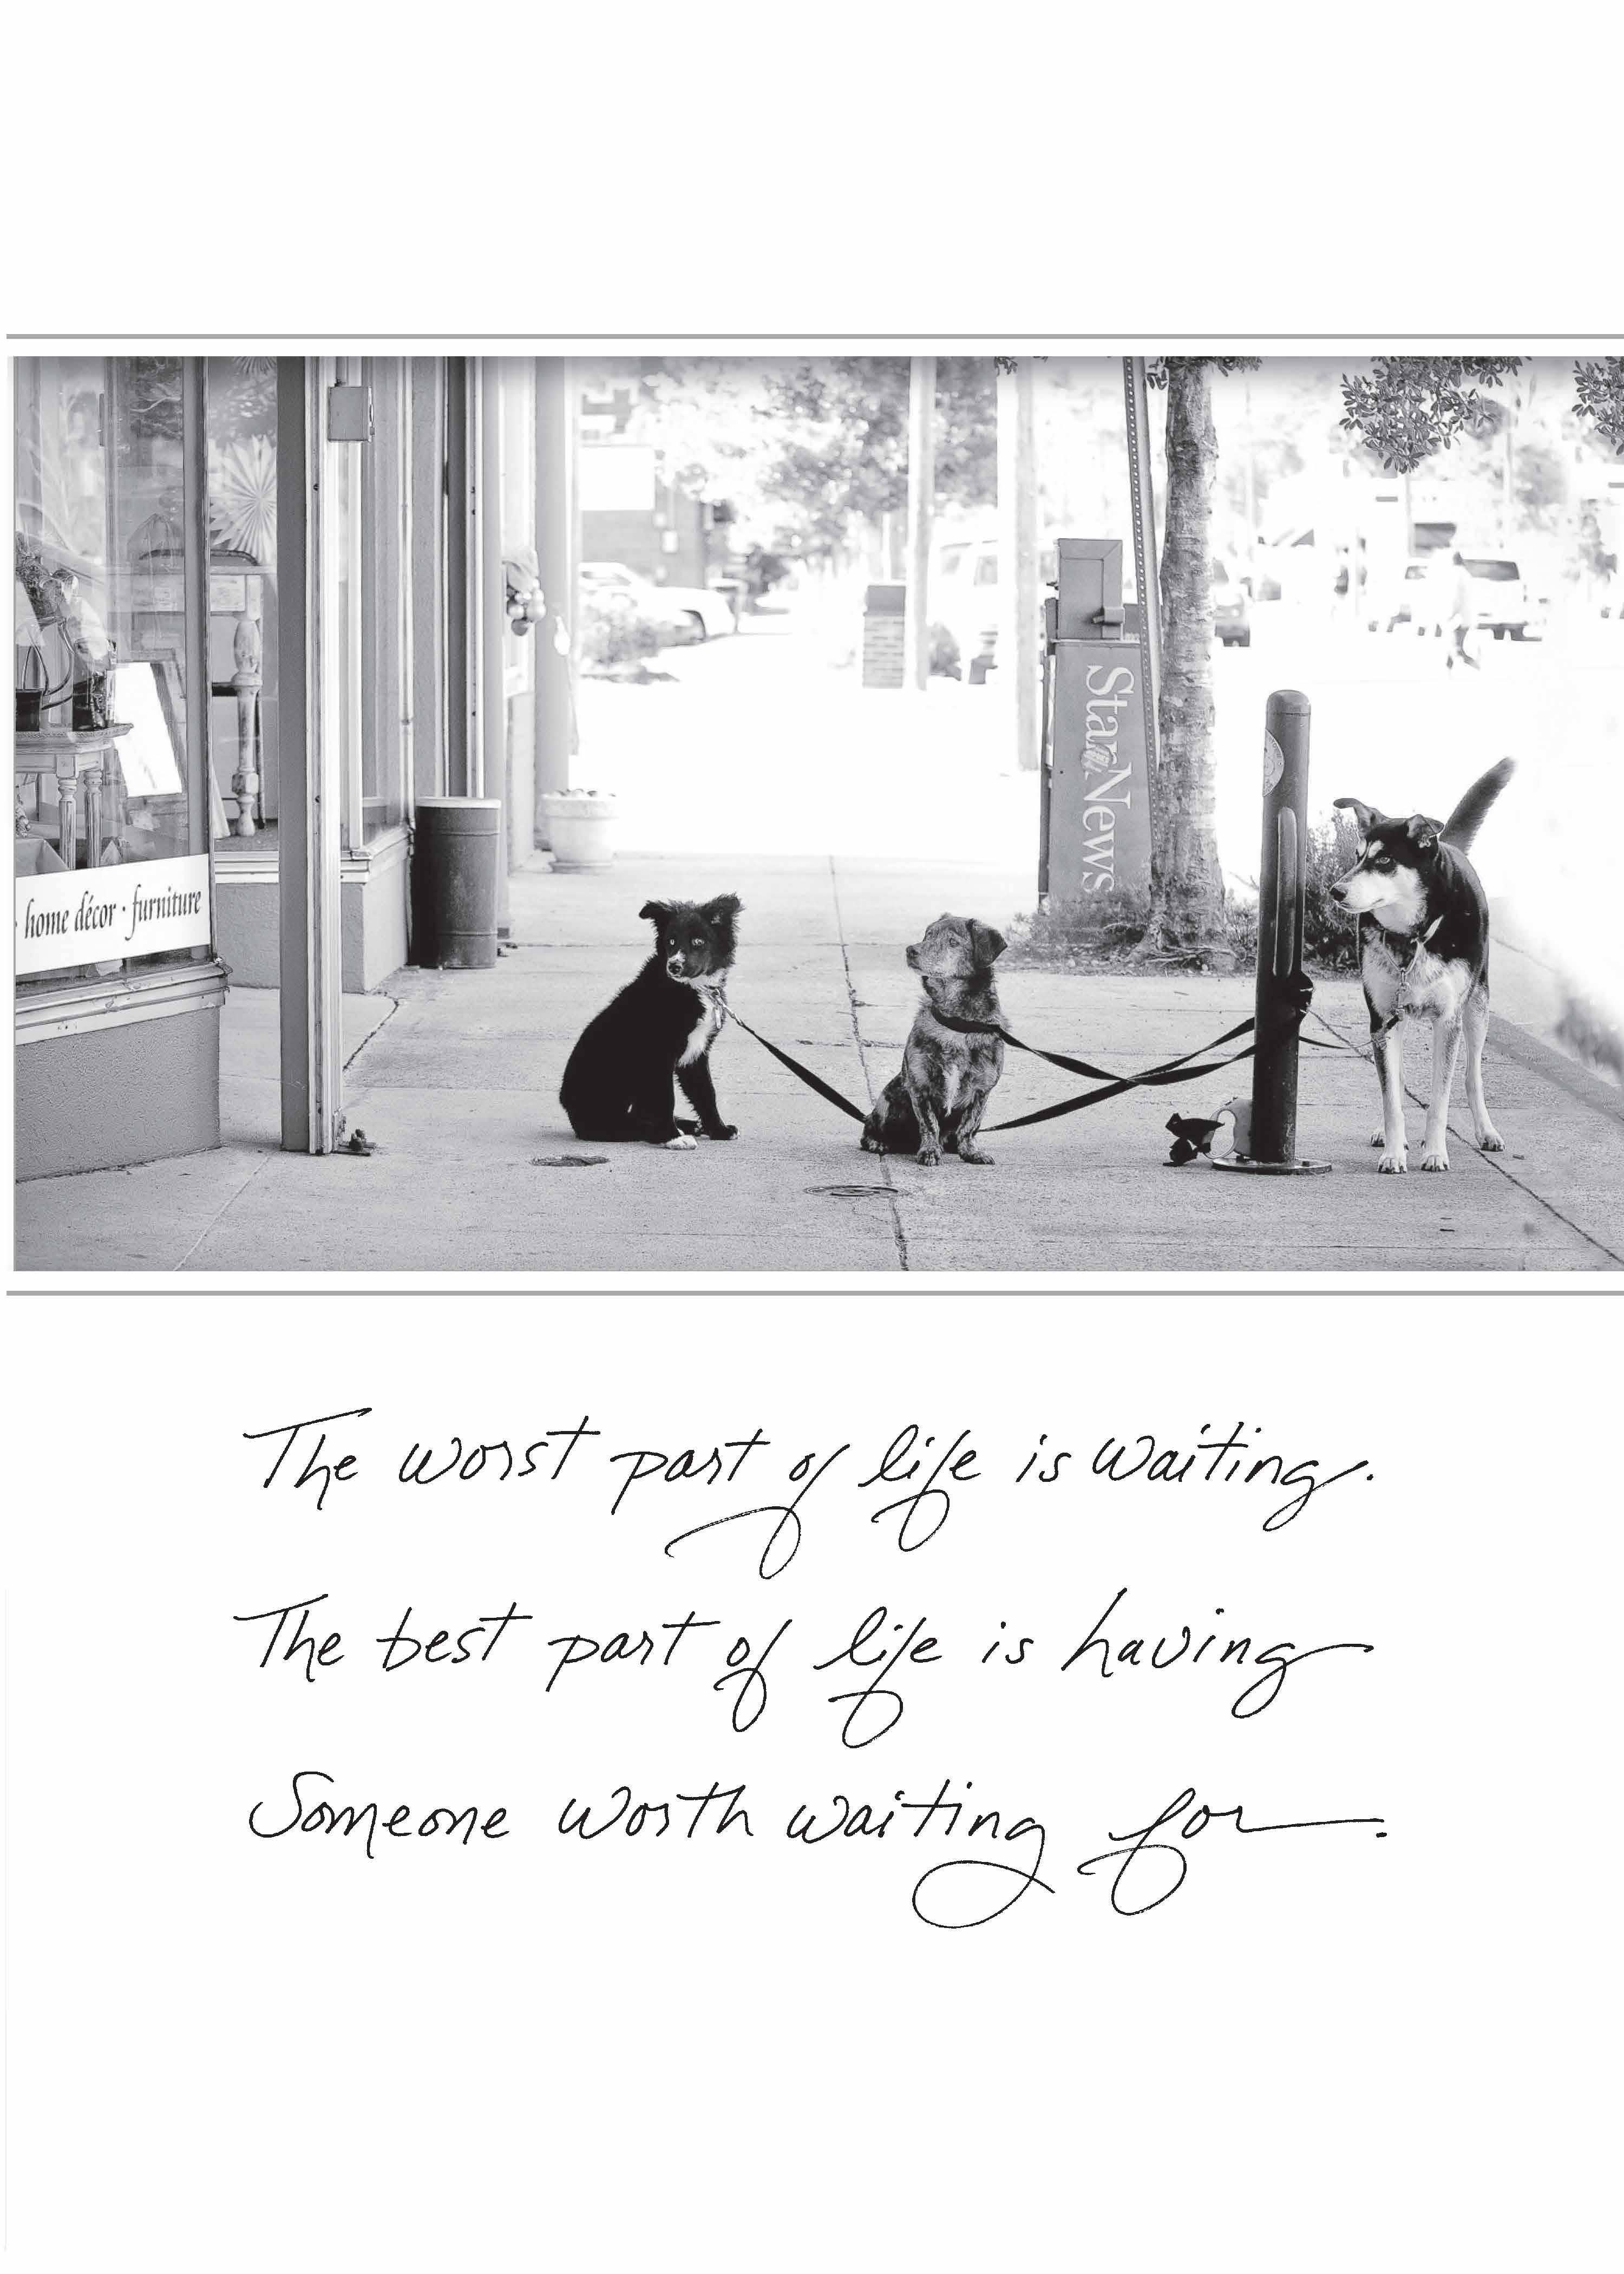 home décor · furniture
StarNews
The worst part of life is waiting.
The best part of life is having
Someone worth waiting for.